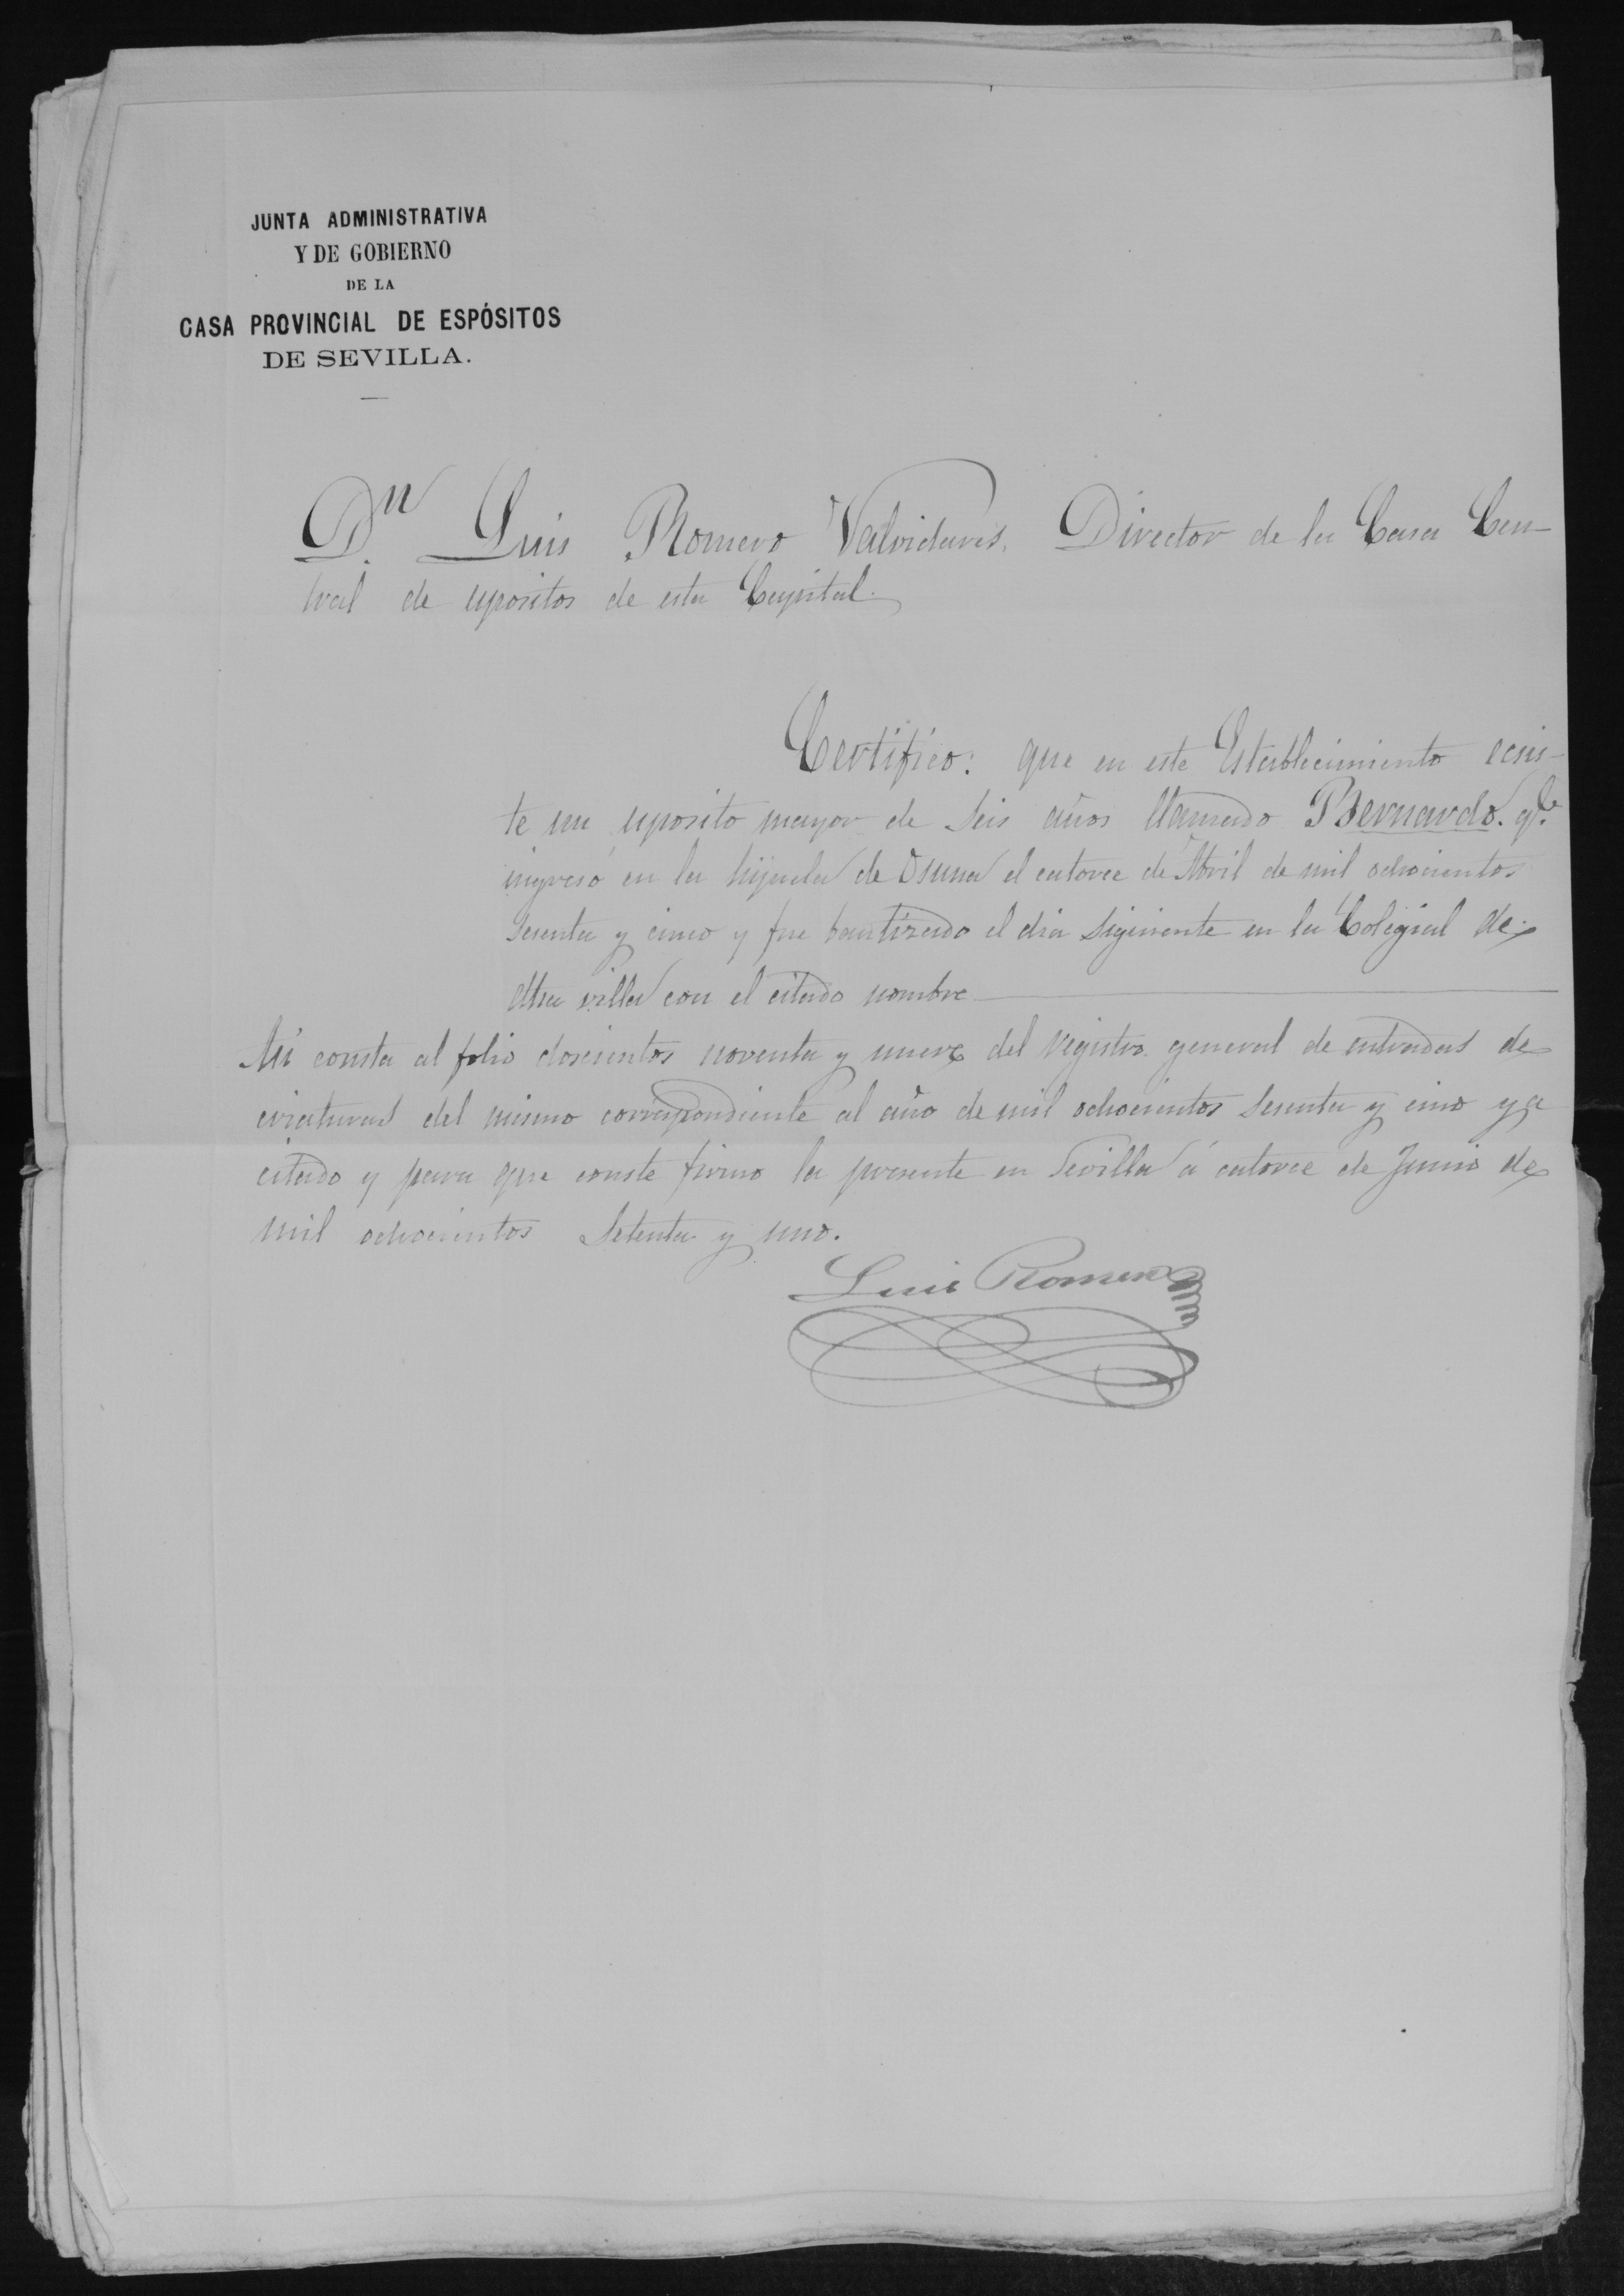 JUNTA ADMINISTRATIVA
Y DE GOBIERNO
DE LA
CASA PROVINCIAL DE ESPÓSITOS
DE SEVILLA.
Dn. Luis Romero Valvidares, Director de la Casa Cen-
tral de espositos de esta Capital.
Certifico: que en este Establecimiento ecsis-
te un esposito mayor de seis años llamado Bernardo. qe.
ingresó en la hijuela de Osuna el catorce de Abril de mil ochocientos
sesenta y cinco y fue bautizado el dia siguiente en la Colegial de
dha villa con el citado nombre
Asi consta al folio doscientos noventa y nueve del registro general de entradas de
criaturas del mismo correspondiente al año de mil ochocientos sesenta y cinco ya
citado y para que conste firmo la presente en Sevilla á catorce de Junio de
mil ochocientos setenta y uno.
Luis Romero